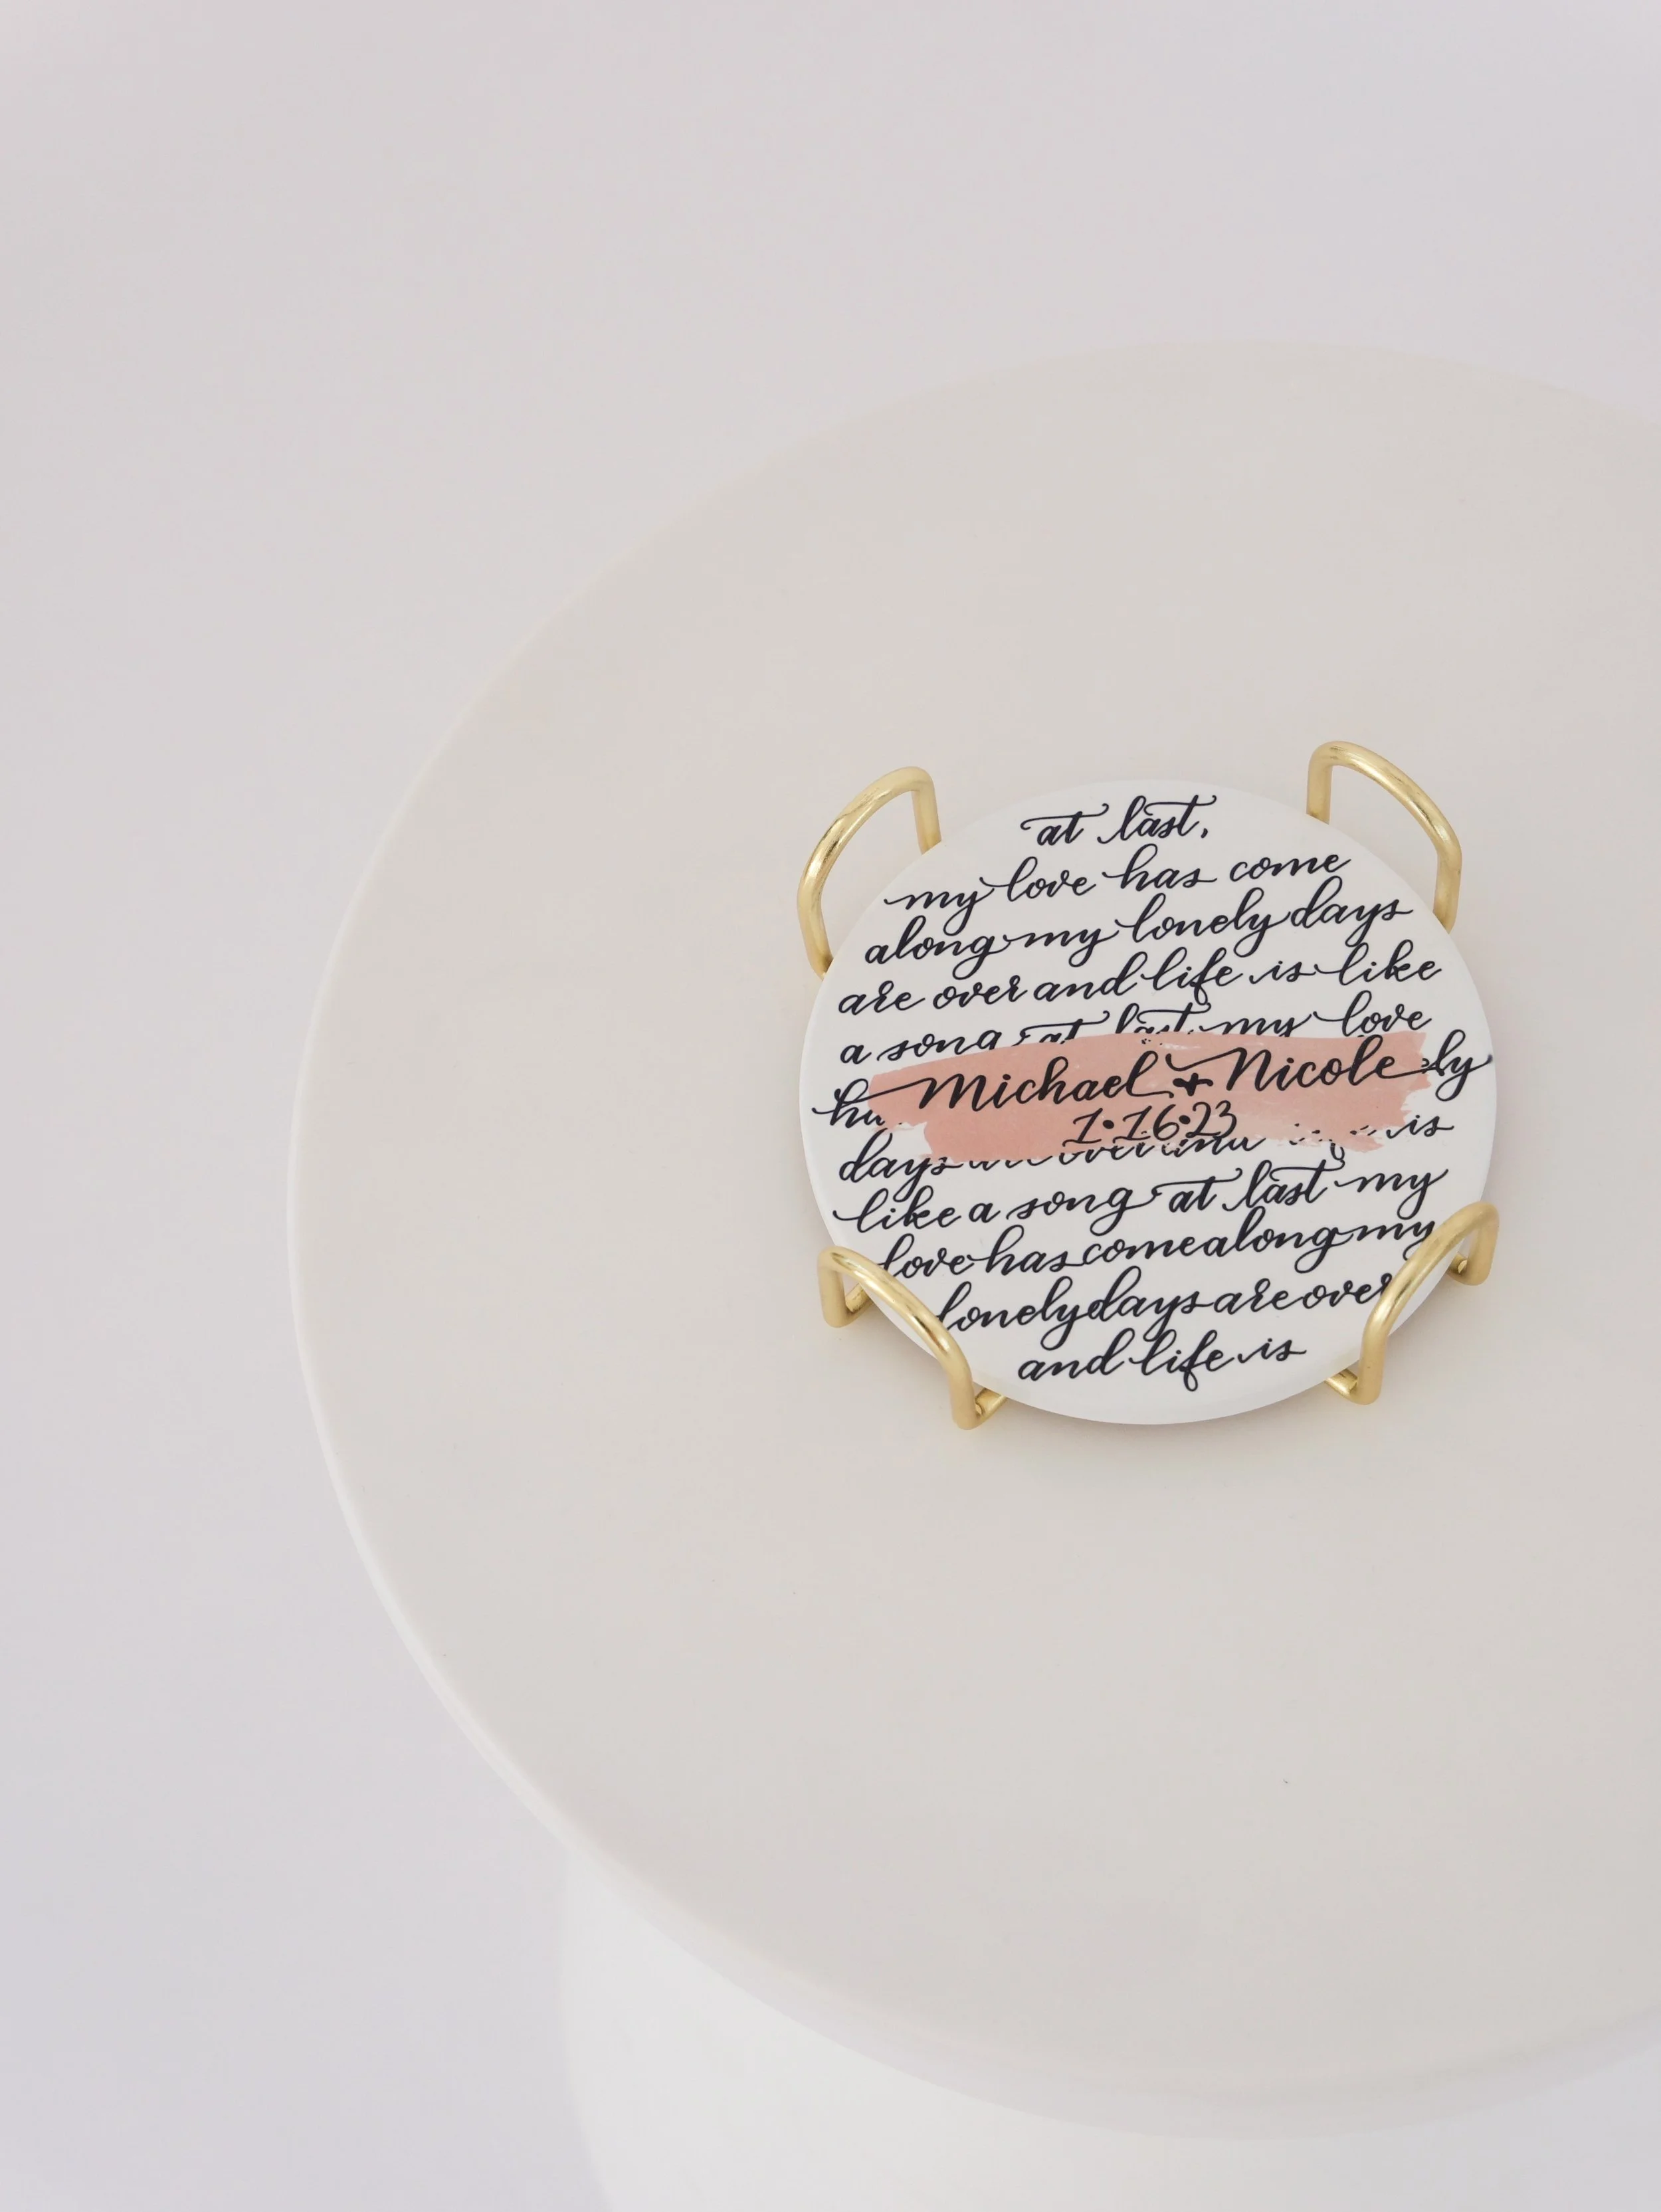 at last,
my love has come
along my lonely days
are over and life is like
a song at last my love
Michael + Nicole ly
1.16.23
days over and is
like a song at last my
love has come along my
lonely days are over
and life is